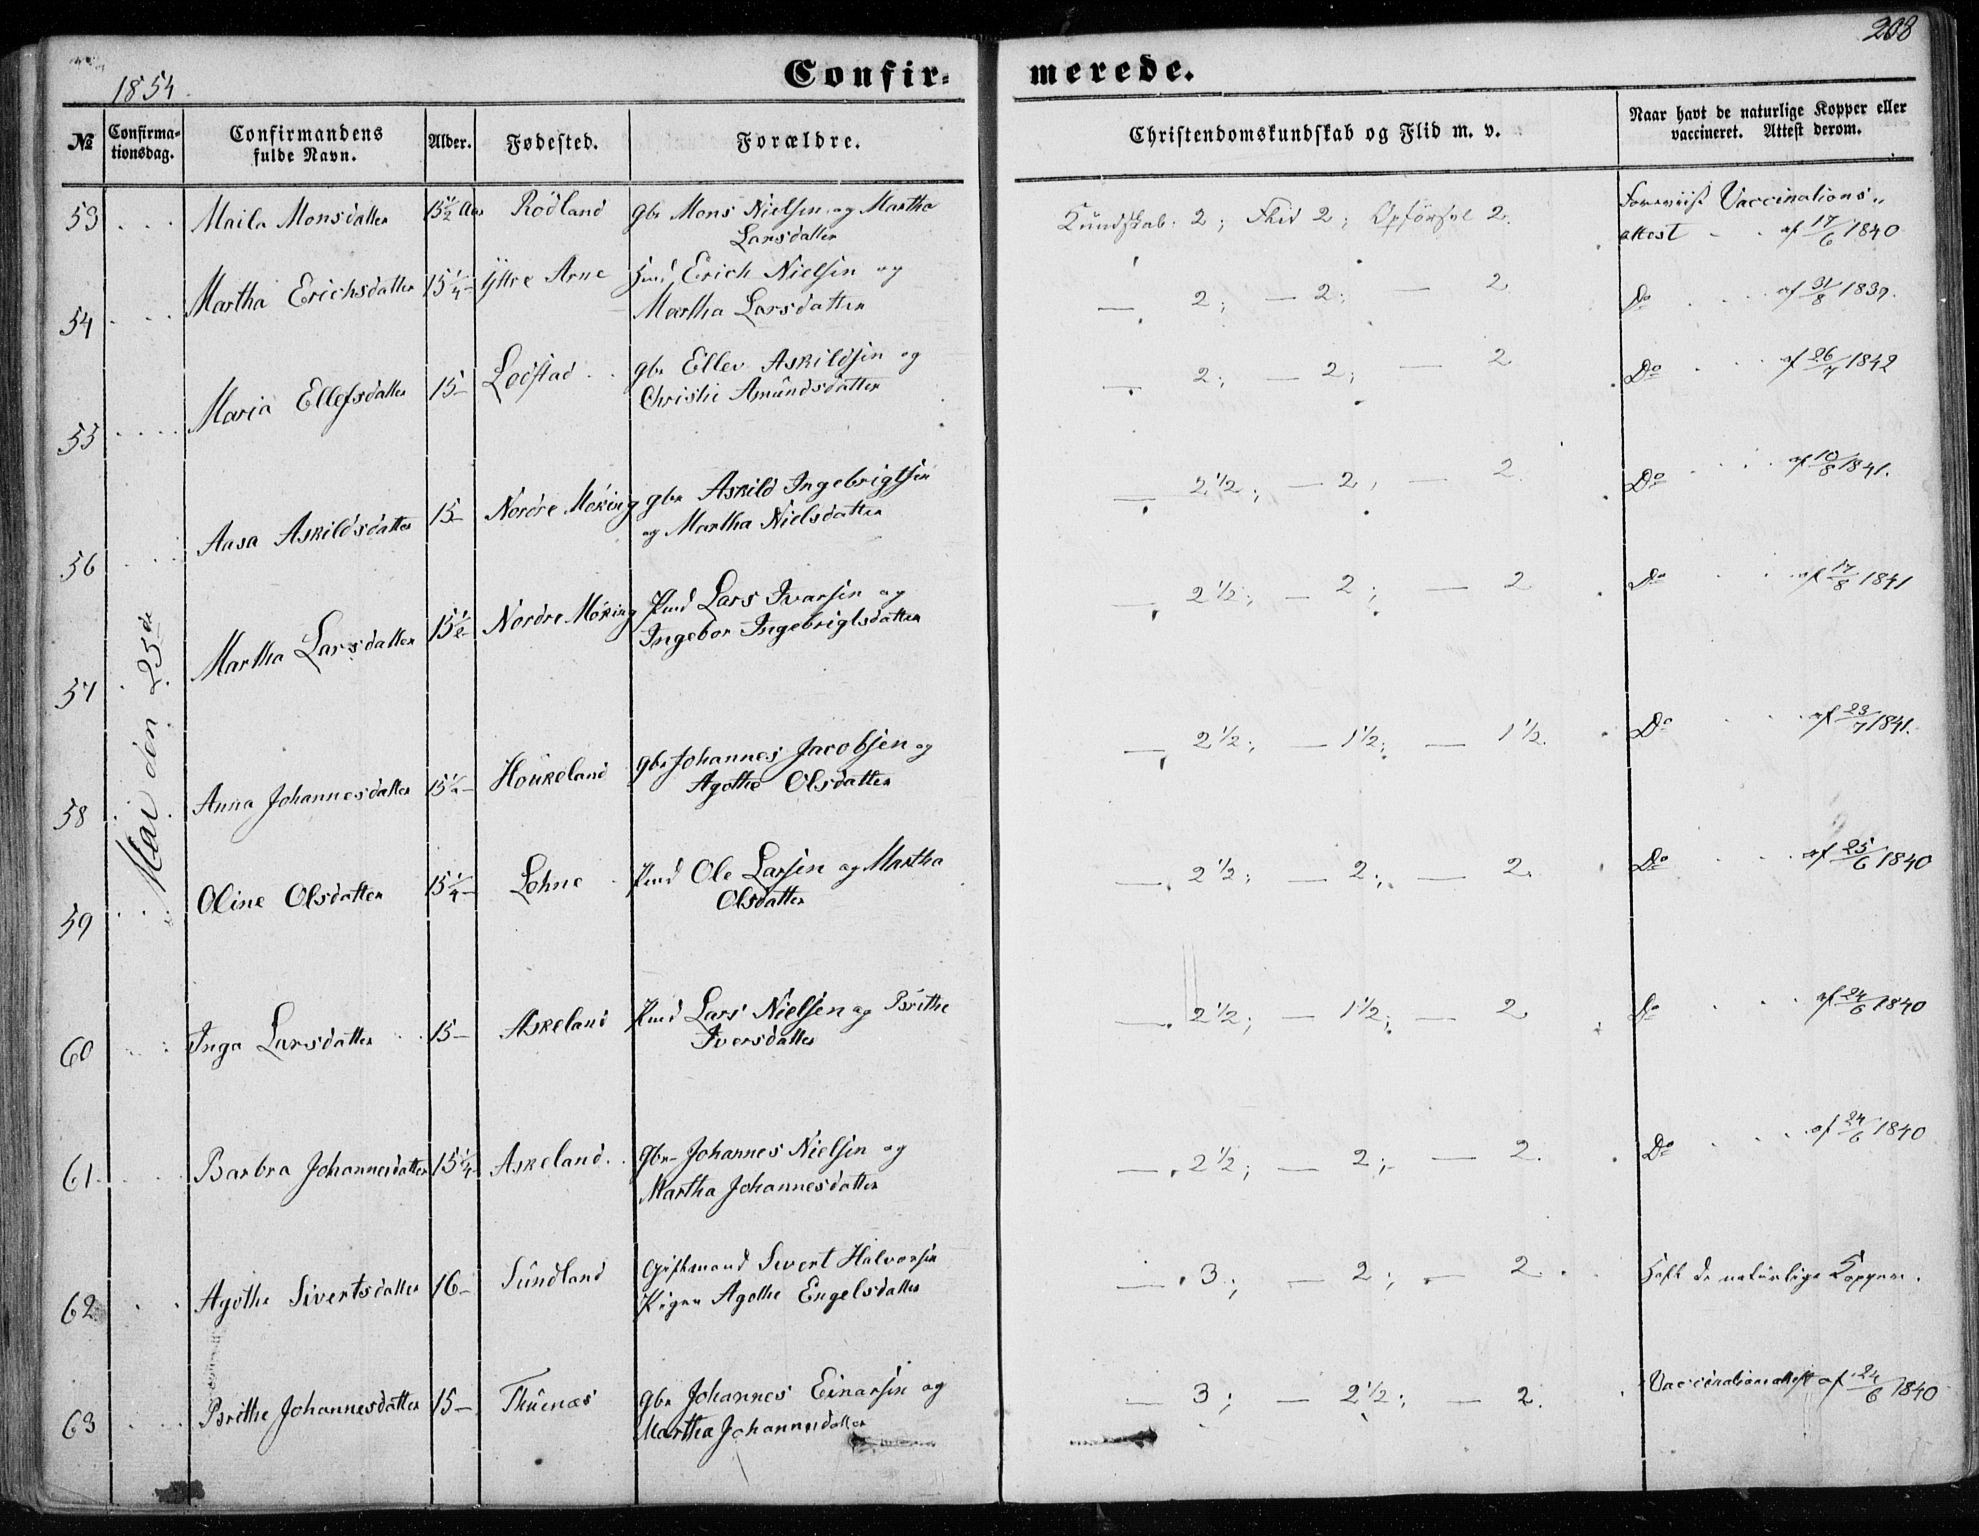 208
1854.
Confir-
merede.
No
Confirma-
tionsdag.
Confirmandens
fulde Navn.
Alder.
Fødested.
Forældre.
Christendomskundskab og Flid m. v.
Naar havt de naturlige Kopper eller
vaccineret. Attest derom.
Mai den 25de
53 Maila Monsdatter 15 1/2 Aar Rödland gbr Mons Nielsen og Martha
Larsdatter
Kundskab: 2; Flid 2; Opförsel 2.
Foreviist Vaccinations-
attest af 17/6 1840
54 Martha Erichsdatter 15 1/4 Yttre Arne Huusmd Erich Nielsen og
Martha Larsdatter
— 2; — 2; — 2
Do af 31/8 1839.
55 Maria Ellefsdatter 15 Lodstad gbr Ellev Askildsen og
Christie Amundsdatter
— 2; — 2; — 2
Do af 26/7 1842
56 Aasa Askildsdatter 15 Nordre Möring gbr Askild Ingebrigtsen
og Martha Nielsdatter
— 2 1/2; — 2; — 2
Do af 10/8 1841.
57 Martha Larsdatter 15 1/2 Nordre Möring Lars Ivarsen og
Ingebor Ingebrigtsdatter
— 2 1/2; — 2; — 2
Do af 17/8 1841
58 Anna Johannesdatter 15 1/2 Houkeland gbr Johannes Jacobsen og
Agothe Olsdatter
— 2 1/2; — 1 1/2; — 1 1/2.
Do af 23/7 1841.
59 Oline Olsdatter 15 1/4 Lohne Ole Larsen og Martha
Olsdatter
— 2 1/2; — 2; — 2.
Do af 25/6 1840
60 Inga Larsdatter 15 Askeland Lars Nielsen og Brithe
Iversdatter
— 2 1/2; — 1 1/2; — 2
Do af 24/6 1840
61 Barbra Johannesdatter 15 1/4 Askeland gbr Johannes Nielsen og
Martha Johannesdatter
— 2 1/2; — 2; — 2.
Do af 24/6 1840
62 Agothe Sivertsdatter 16 Sundland Giftmand Sivert Halvorsen
Pigen Agothe Engelsdatter
— 3; — 2; — 2.
Haft de naturlige Kopper.
63 Brithe Johannesdatter 15 Thuenæs gbr Johannes Einarsen og
Martha Johannesdatter
— 3; — 2 1/2; — 2.
Vaccinationsattest af 24/6 1840